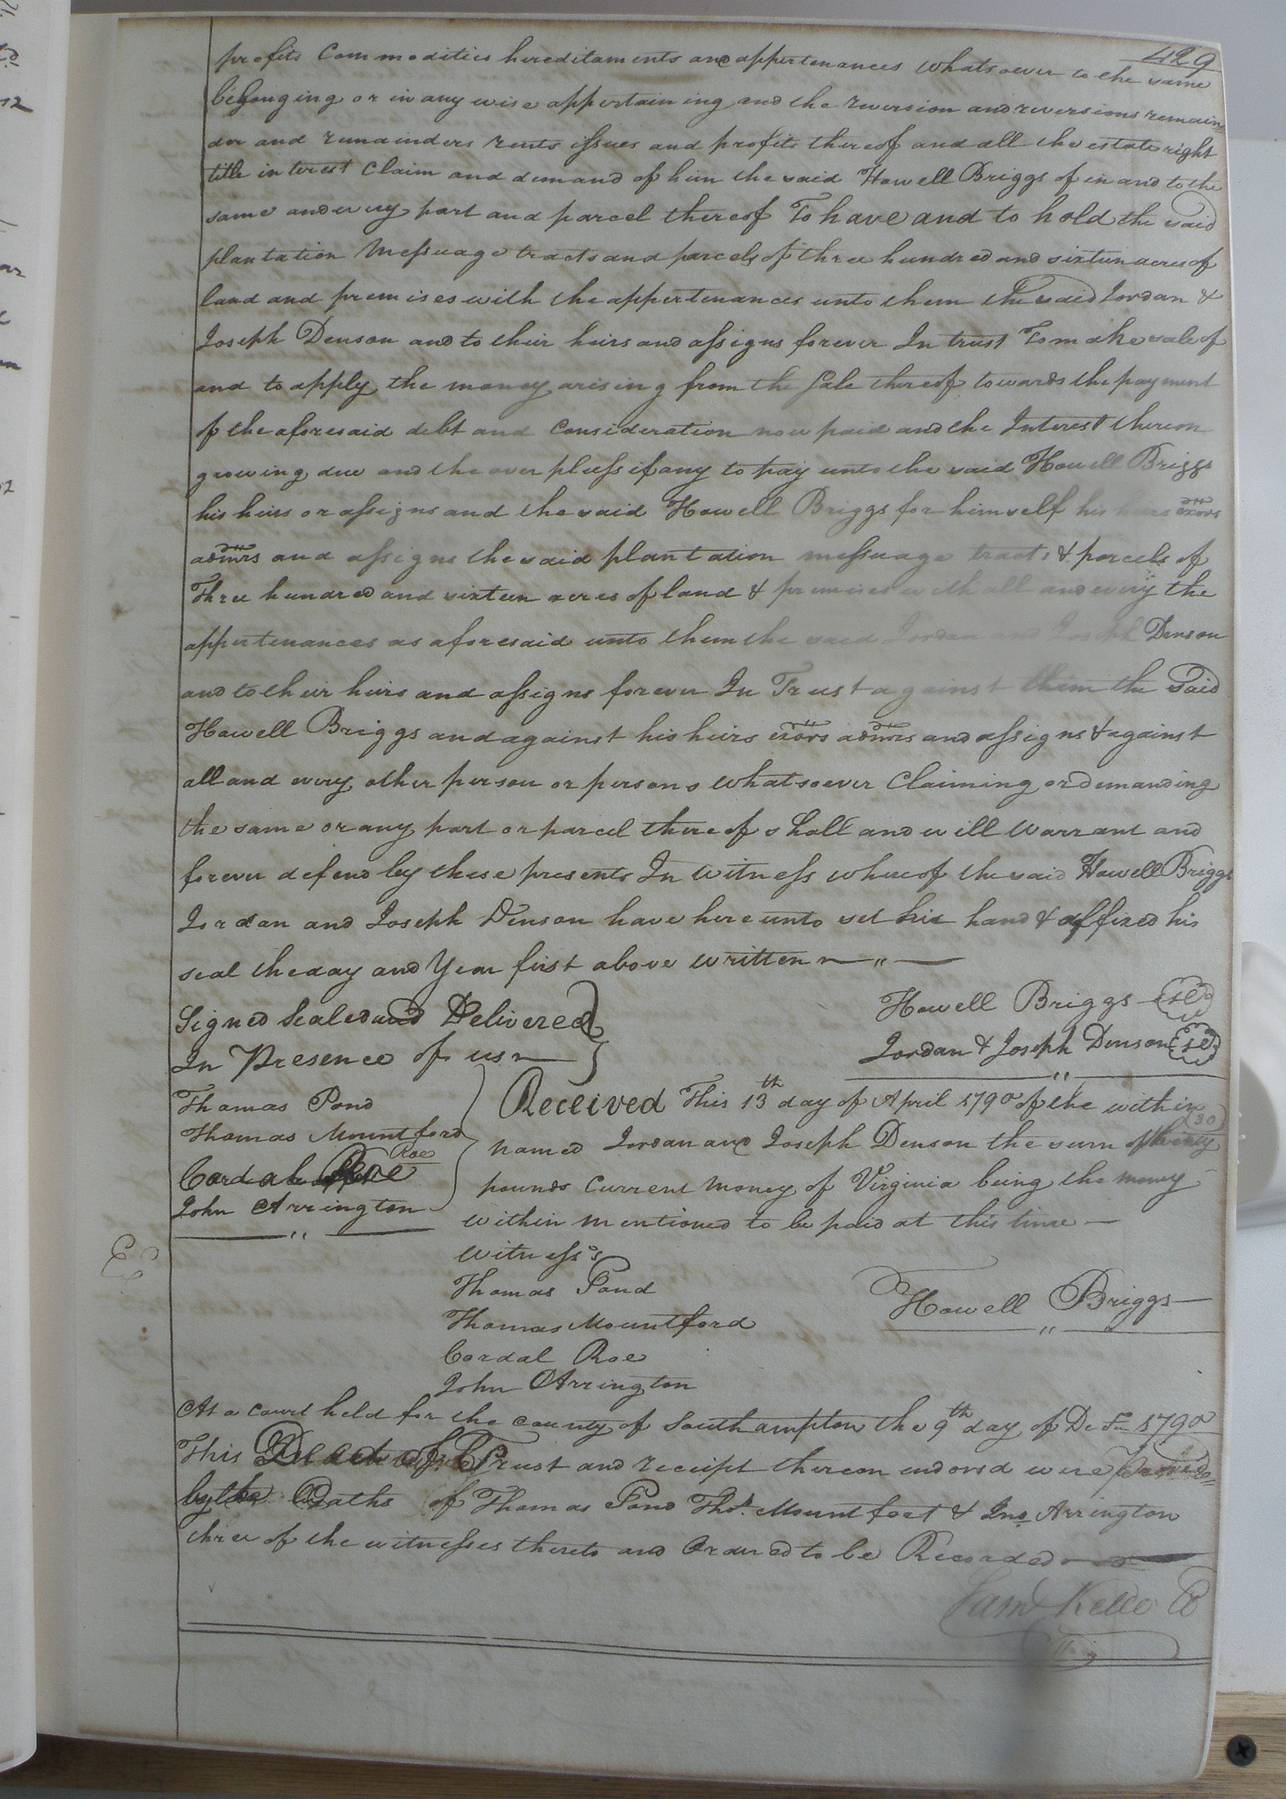 429
profits Commodities hereditaments and appertenances whatsoever to the same
belonging or in any wise appertaining and the reversion and reversions remain
der and remainders rents issues and profits thereof and all the estate right
title interest Claim and demand of him the said Howell Briggs of in and to the
same and every part and parcel thereof To have and to hold the said
plantation Messuage tracts and parcels of three hundred and sixteen acres of
land and premises with the appertenances unto them the said Jordan &
Joseph Denson and to their heirs and assigns forever In trust To make sale of
and to apply the money arising from the Sale thereof towards the payment
of the aforesaid debt and Consideration now paid and the Interest thereon
growing due and the over pluss if any to pay unto the said Howell Briggs
his heirs or assigns and the said Howell Briggs for himself his heirs exors
admrs and assigns the said plantation messuage tracts & parcels of
Three hundred and sixteen acres of land & premises with all and every the
appertenances as aforesaid unto them the said Jordan and Joseph Denson
and to their heirs and assigns forever In Trust against him the said
Howell Briggs and against his heirs exors admrs and assigns & against
all and every other person or persons whatsoever Claiming or demanding
the same or any part or parcel thereof shall and will Warrant and
forever defend by these presents In Witness whereof the said Howell Briggs
Jordan and Joseph Denson have hereunto set his hand & affixed his
seal the day and Year first above written
Signed Sealed and Delivered
In Presence of us
Howell Briggs
Jordan & Joseph Denson
Thomas Pond
Thomas Mountford
Cordal Roe
John Arrington
Received This 13th day of April 1790 of the within
named Jordan and Joseph Denson the sum of thirty (30)
pounds Current Money of Virginia being the money
within mentioned to be paid at this time
Witness's
Thomas Pond
Thomas Mountford
Cordal Roe
John Arrington
Howell Briggs
At a Court held for the County of Southampton the 9th day of 1790
This Deed of Trust and receipt thereon endorsd were Proved
by the Oaths of Thomas Pond Thos. Mountfort & Jno. Arrington
three of the witnesses thereto and Ordered to be Recorded
Saml Kello